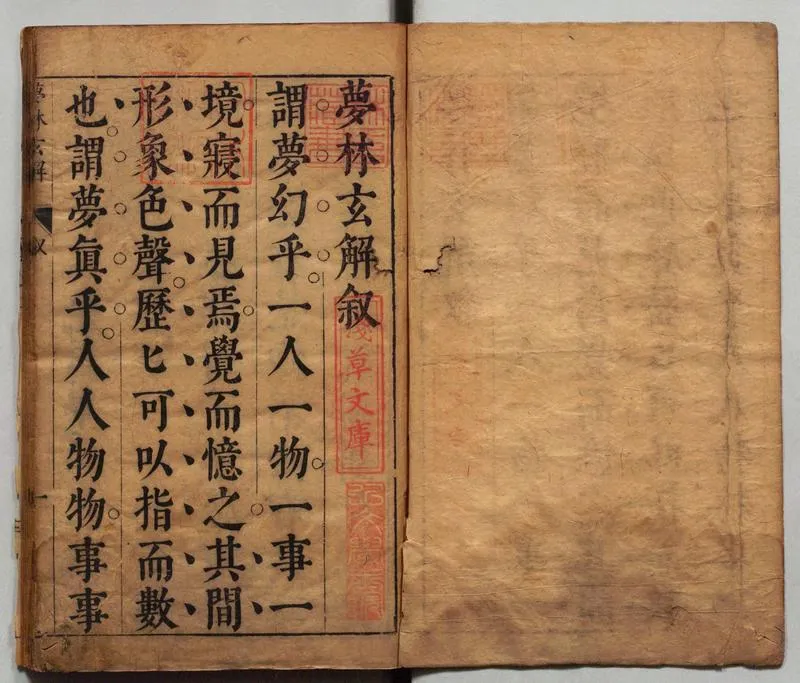 夢林玄解叙
謂夢幻乎一人一物一事一
境寢而見焉覺而憶之其間
形象色聲歷匕可以指而數
也謂夢眞乎人人物物事事
夢林玄解
叙
一
淺草文庫